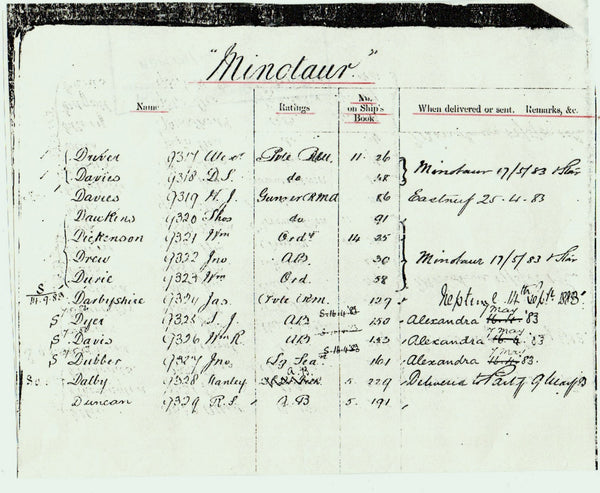 "Minotaur"
Name Ratings No. on Ship's Book When delivered or sent. Remarks, &c.
Driver 9317 Pvte 11 26
Davies 9318 D.S. do 48 Minotaur 17/5/83 & Star
Davies 9319 W. J. Gunner RMA 86 Eastney 25.4.83
Dawkins 9320 Thos do 91
Dickenson 9321 Wm Ordy 14 25
Drew 9322 Jno AB 30 Minotaur 17/5/83 & Star
Durie 9323 Wm Ord. 58
S 14.9.83 Darbyshire 9324 Jas. Pvte RM. 129 Neptune 14th Sept 1883
S Dyer 9325 S. J. AB S.16.4.83 150 Alexandra 7 May 16.4 '83
S Davis 9326 Wm R. AB 153 Alexandra 7 May 16.4 .83
S Dubber 9327 Jno. Lg Sea S.16.4.83 161 Alexandra 7 May 16.4 .83
Dalby 9328 A.B. 5. 229 Delivered to Party 9
Duncan 9329 R. S. AB 5. 191